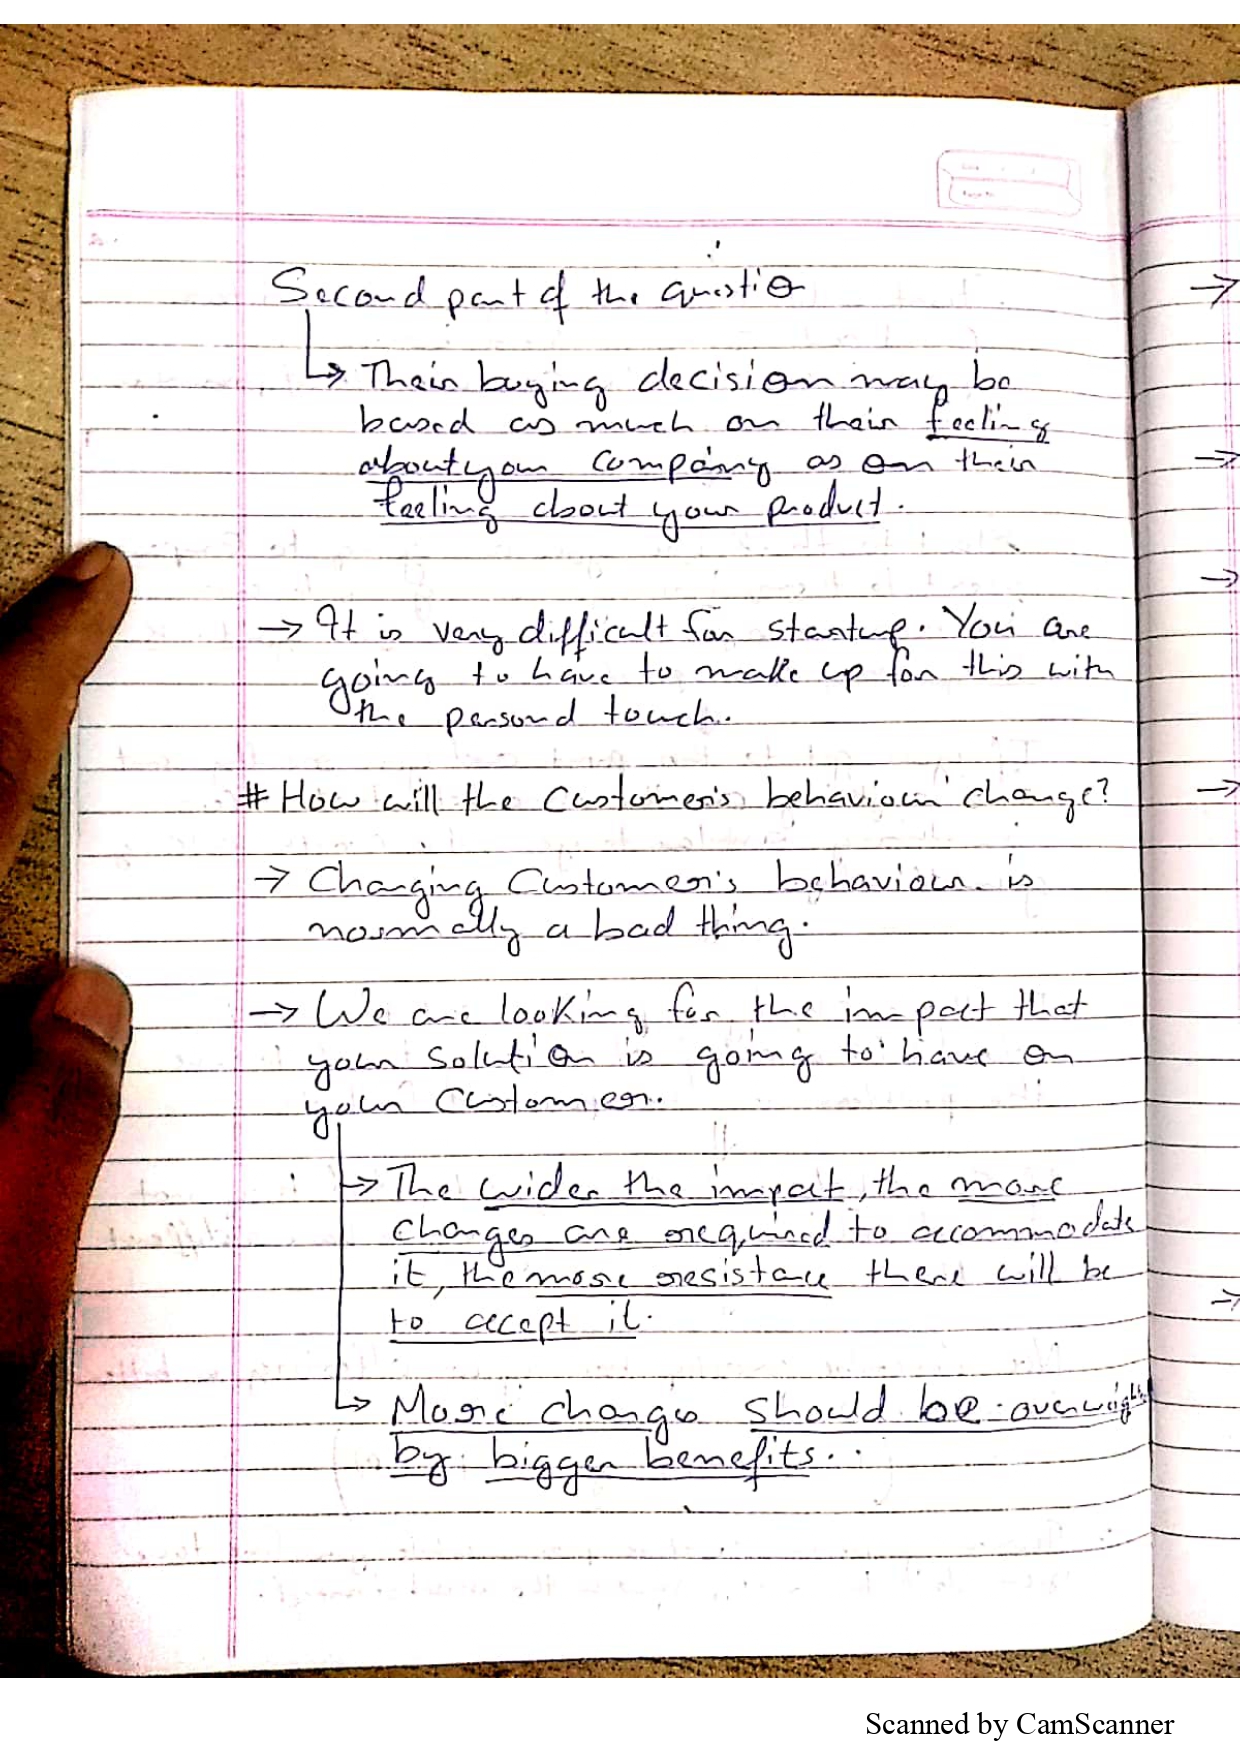 Second part of the questio
↳ Their buying decision may be
based as much on their feeling
about your company as on their
feeling about your product.
→ It is very difficult for startup. You are
going to have to make up for this with
the personal touch.
# How will the Customer's behaviour change?
→ Changing Customer's behaviour is
normally a bad thing.
→ We are looking for the impact that
your solution is going to have on
your Customer.
→ The wider the impact, the more
changes are required to accommodate
it, the more resistance there will be
to accept it.
↳ More changes should be
by bigger benefits.
Scanned by CamScanner